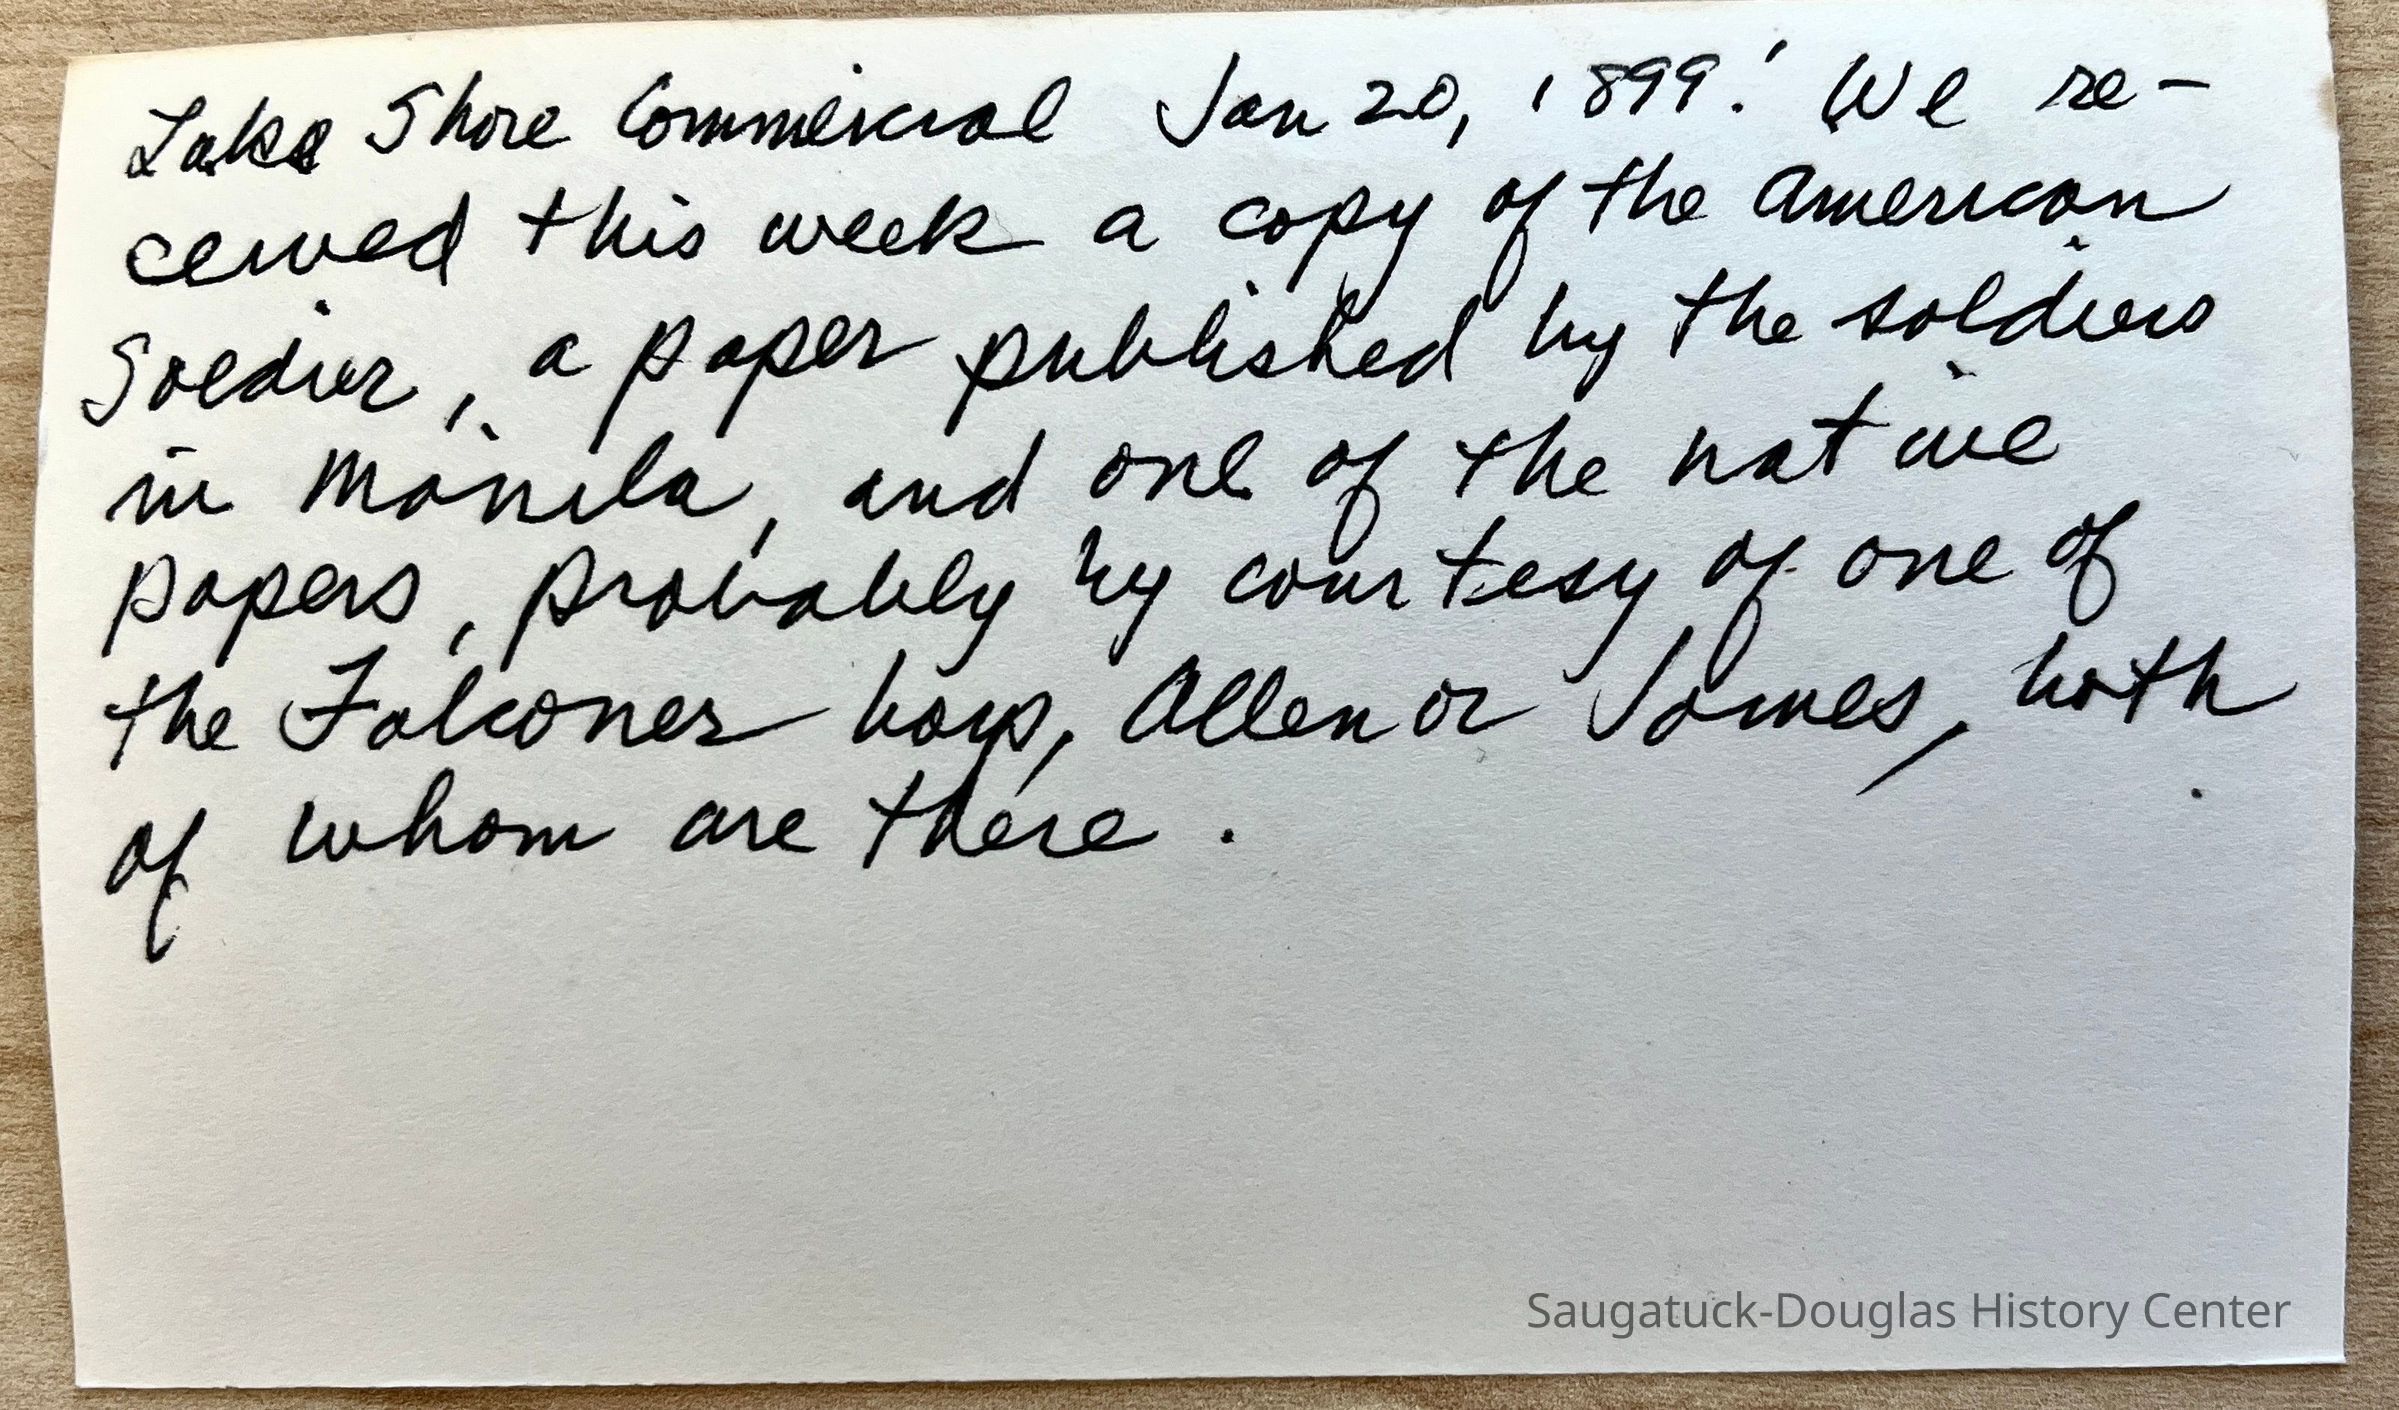 Lake Shore Commercial Jan 20, 1899. We re-
ceived this week a copy of the American
Soldier, a paper published by the soldiers
in Manila, and one of the native
papers, probably by courtesy of one of
the Falconer boys, Allen or James, both
of whom are there.
Saugatuck-Douglas History Center